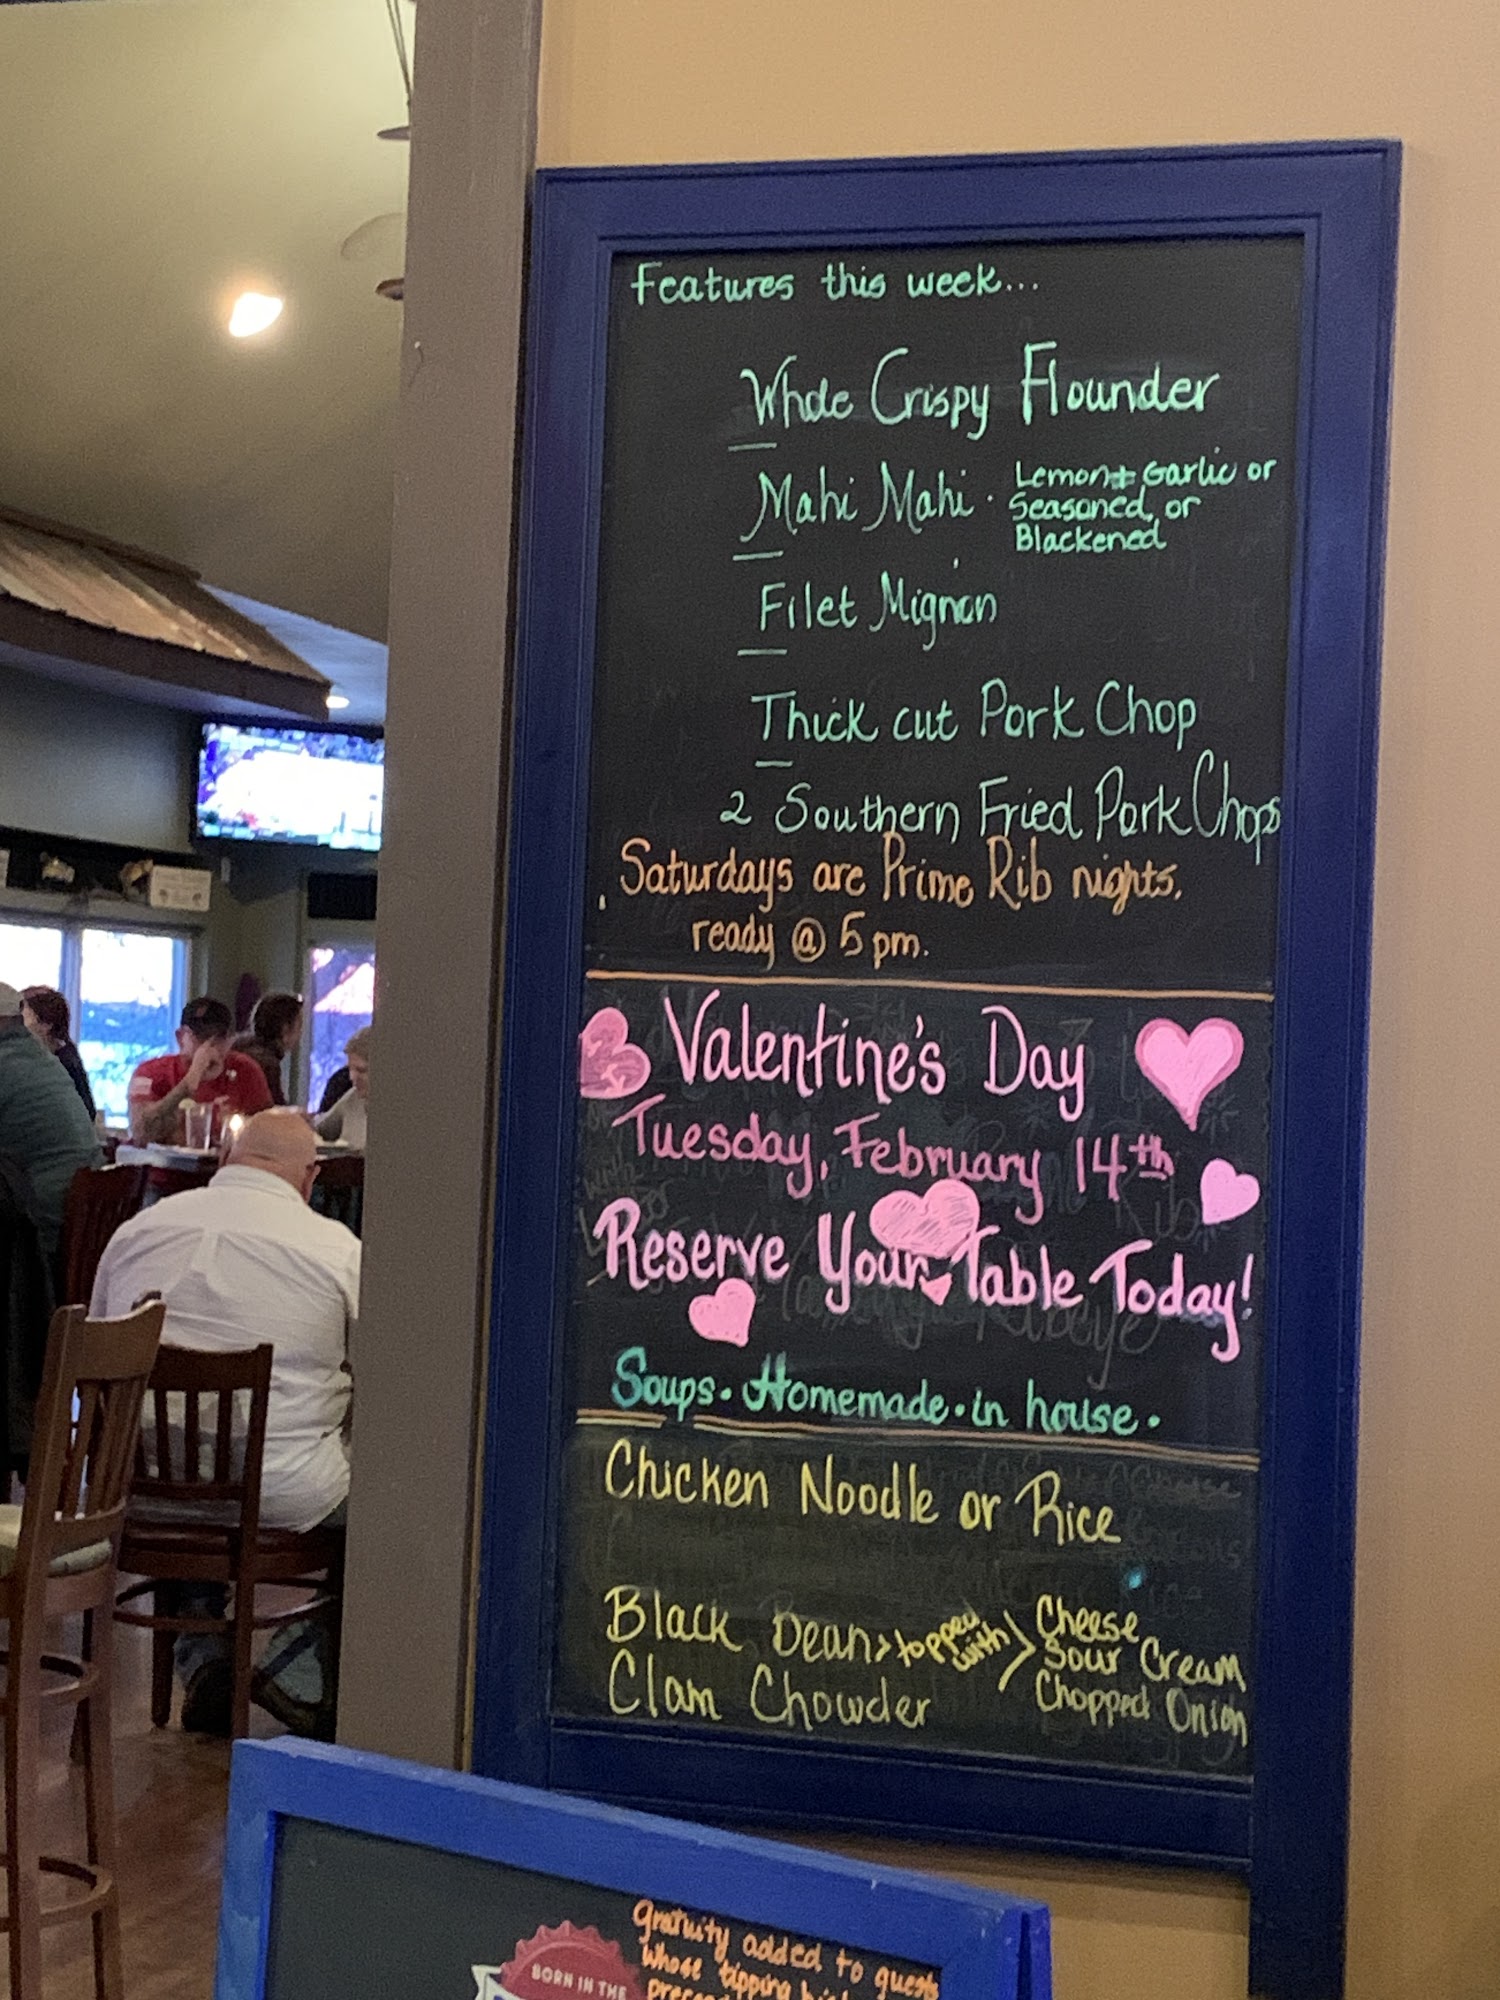 Features this week...
Whole Crispy Flounder
Mahi Mahi · Lemon + Garlic or
Seasoned, or
Blackened
Filet Mignon
Thick cut Pork Chop
2 Southern Fried Pork Chops
Saturdays are Prime Rib nights.
ready @ 5 pm.
Valentine's Day
Tuesday, February 14th
Reserve Your Table Today!
Soups • Homemade • in house •
Chicken Noodle or Rice
Black Bean > topped with > Cheese
Sour Cream
Chopped Onion
Clam Chowder
gratuity added to guests
whose tipping
BORN IN THE